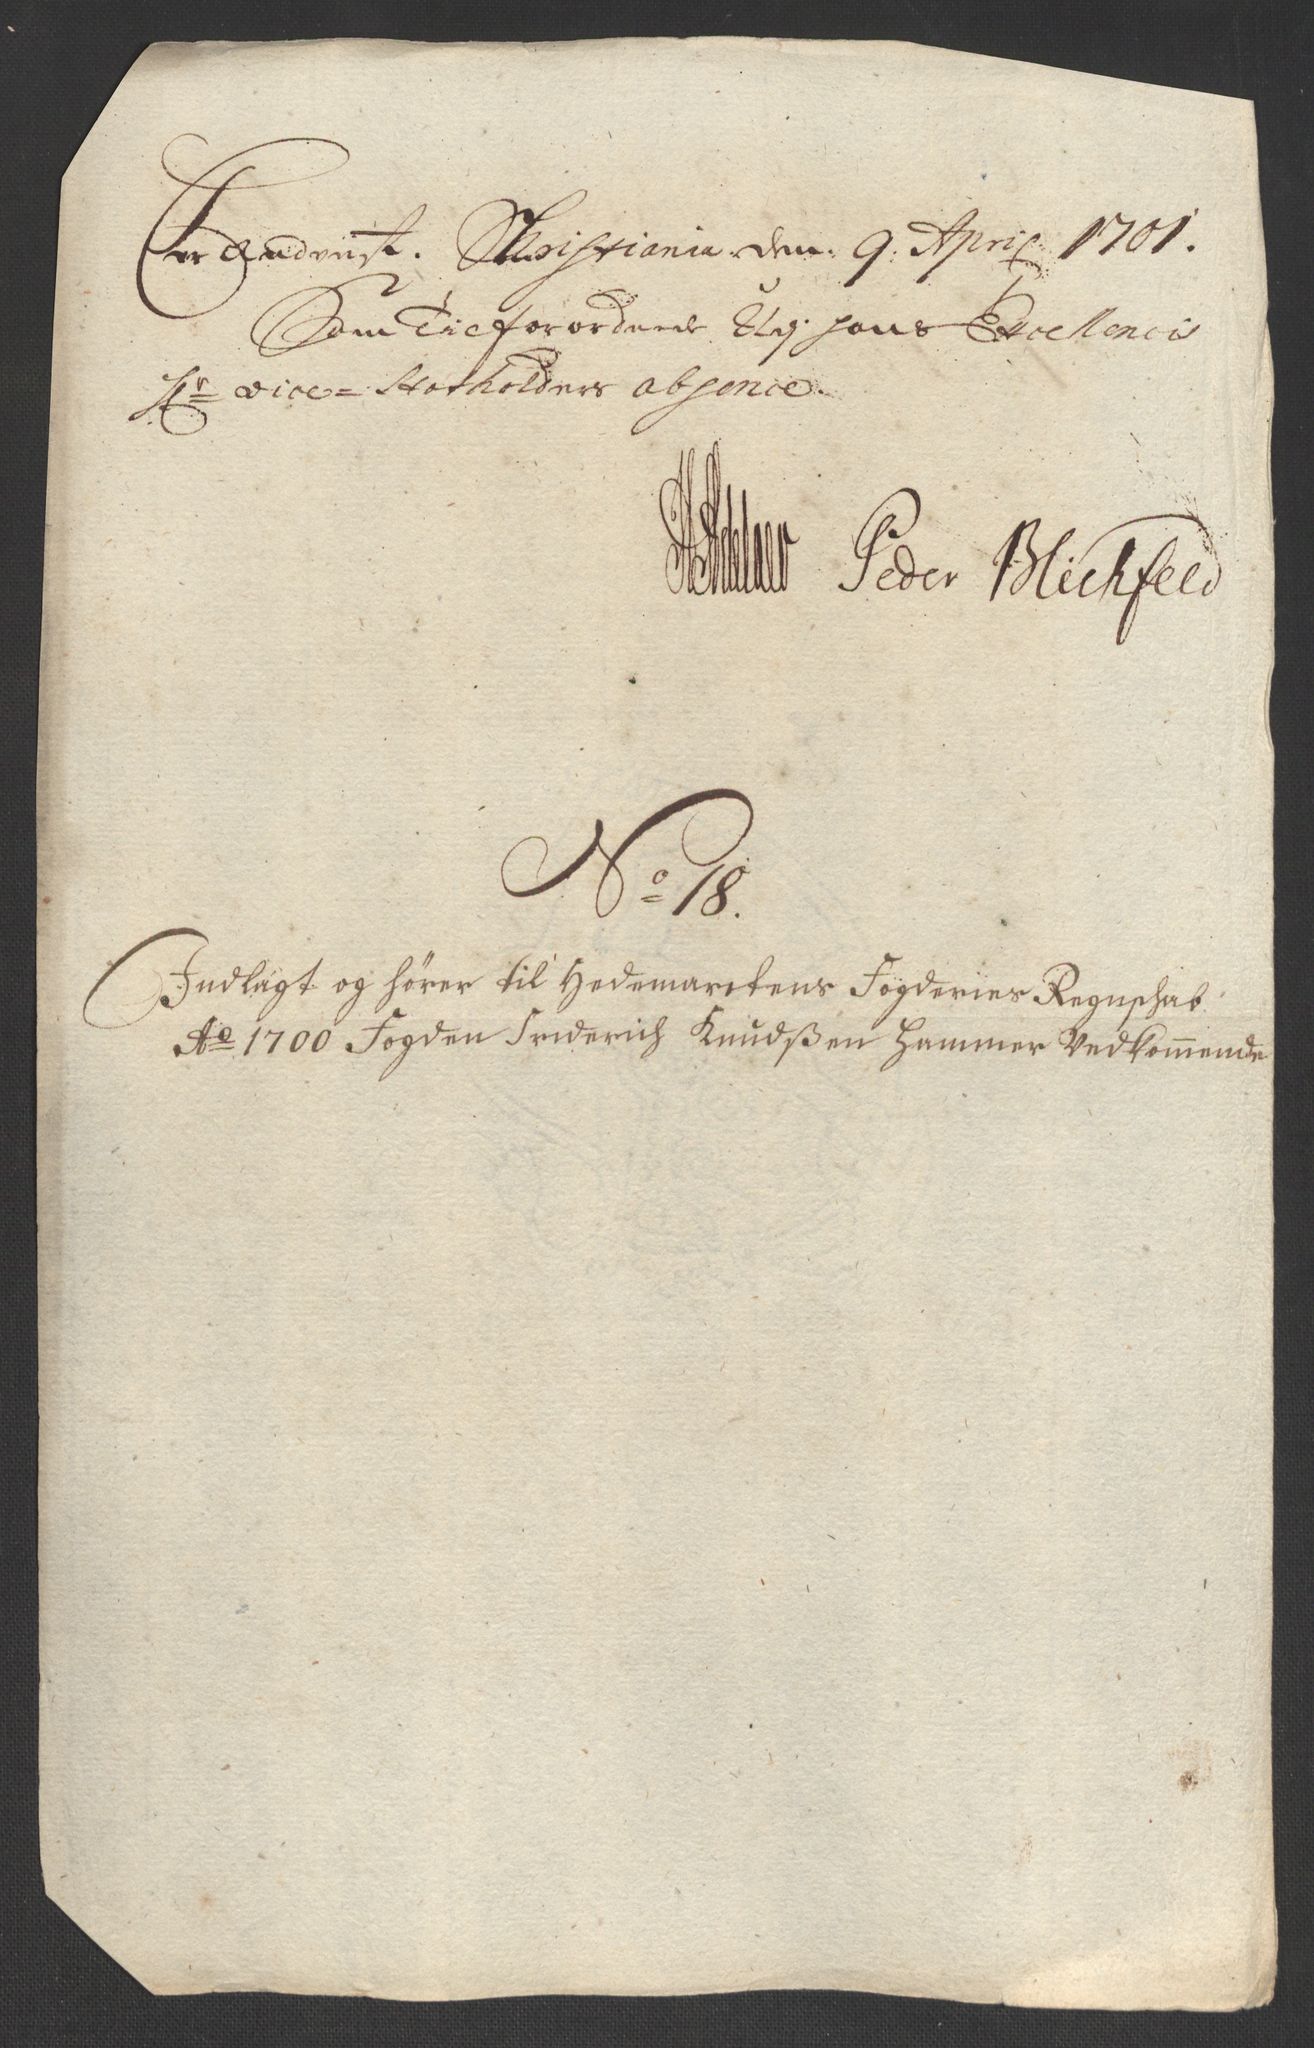 Christiania den: 9. April 1701.
Som Tilforordnede Udj hans Excellencis
Hr vice= Statholders absence.
Peder Blichfeld
No 18.
Indlagt og hører til Hedemarckens Fogderies Regnschab
Ao 1700 Fogden Friderich Knudßen Hammer Vedkommende